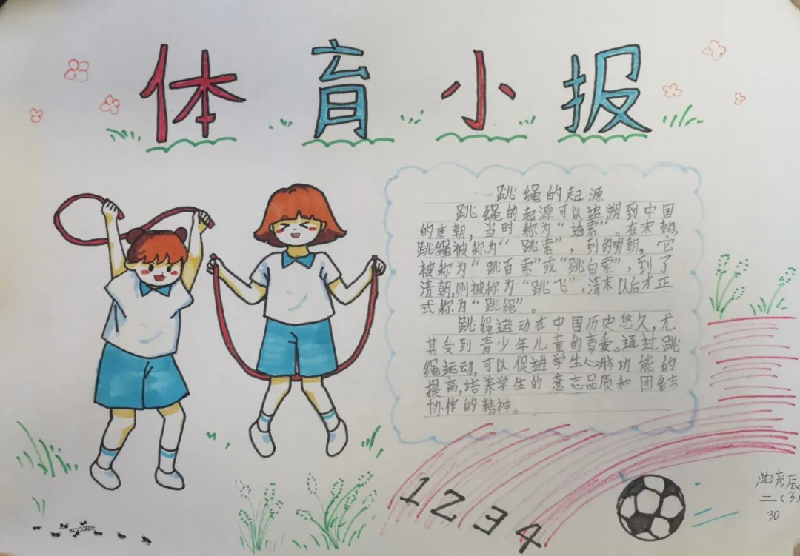 体育小报
跳绳的起源
跳绳的起源可以追溯到中国
的 朝，当时称为“ 索”。在宋朝，
跳绳被称为“跳索”，到的明朝，它
被称为“跳百索”或“跳白索”，到了
清朝，则被称为“跳飞”，清末以后才正
式称为“跳绳”。
跳绳运动在中国历史悠久，尤
其受到青少年儿童的喜爱。通过跳
绳运动，可以促进学生心肺功能的
提高，培养学生的意志品质和团结
协作的精神。
1 2 3 4
二（3）
30